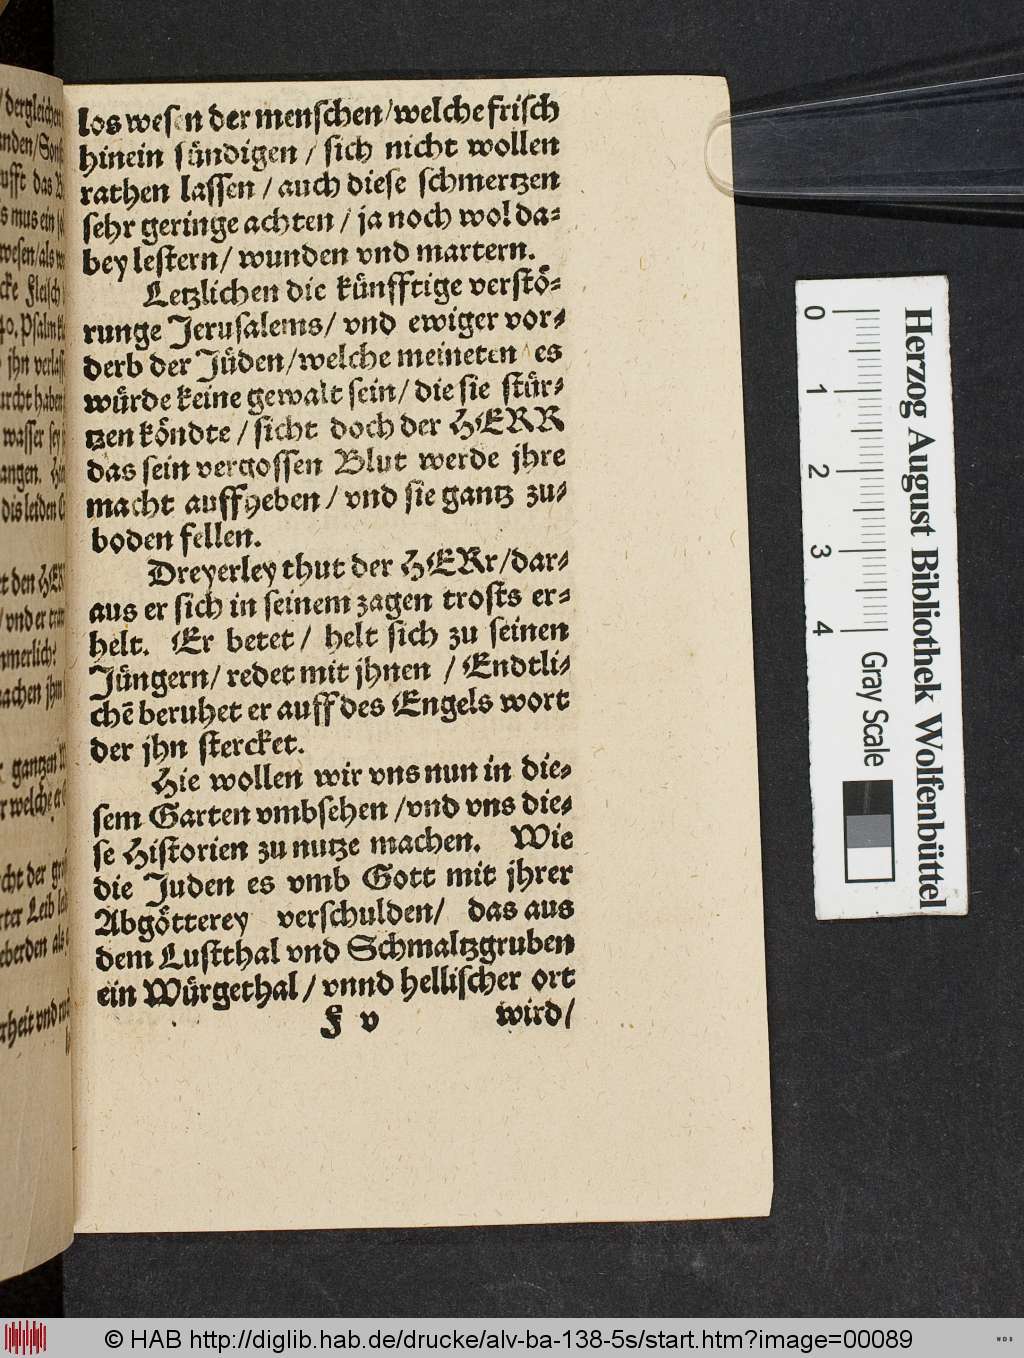 los wesen der menschen/welche frisch
hinein sündigen / sich nicht wollen
rathen lassen / auch diese schmertzen
sehr geringe achten / ja noch wol da=
bey lestern/ wunden vnd martern.
Letzlichen die künfftige verstö=
runge Jerusalems/ vnd ewiger vor=
derb der Jüden/welche meineten es
würde keine gewalt sein/ die sie stür=
tzen köndte / sicht doch der HERR
das sein vergossen Blut werde jhre
macht auffheben / vnd sie gantz zu=
boden fellen.
Dreyerley thut der HERr/dar=
aus er sich in seinem zagen trosts er=
helt. Er betet / helt sich zu seinen
Jüngern/ redet mit jhnen / Endtli=
chē beruhet er auff des Engels wort
der jhn stercket.
Hie wollen wir vns nun in die=
sem Garten vmbsehen /vnd vns die=
se Historien zu nutze machen. Wie
die Juden es vmb Gott mit jhrer
Abgötterey verschulden/ das aus
dem Lustthal vnd Schmaltzgruben
ein Würgethal / vnnd hellischer ort
F v wird/
dergleichen
ufft das
s mus ein
wesen/als
cke Fleisch
40. Psalm
jhn verlass
wasser sey
angen.
dis leiden
t den HER
/ vnd er
mmerlich:
machen jhn
gantzen
r welche er
cht der
rter Leib
eberden als
rheit vnd
Herzog August Bibliothek Wolfenbüttel
0 1 2 3 4 Gray Scale
© HAB http://diglib.hab.de/drucke/alv-ba-138-5s/start.htm?image=00089